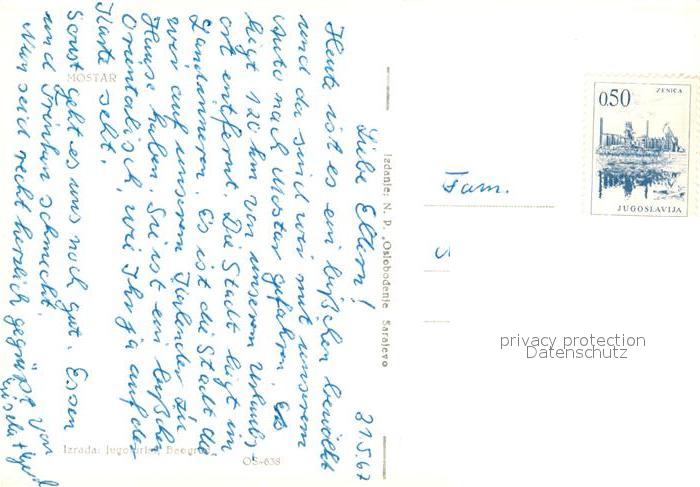 MOSTAR
31.5.67
Liebe Eltern!
Heute ist es ein bißchen bewölkt
und da sind wir mit unserem
Auto nach Mostar gefahren. Es
liegt 120 km von unserem Urlaubs
ort entfernt. Die Stadt liegt im
Landinneren. Es ist die Stadt die
wir auf unserem Kalender zu
Hause haben. Sie ist ein bißchen
Orientalisch, wie Ihr ja auf der
Karte seht.
Sonst geht es uns noch gut. Essen
und Trinken schmeckt.
Nun seid recht herzlich gegrüßt von
Izrada: Jugoslavija, Beograd
OS-638
Izdanje: N. P. „Oslobođenje Sarajevo
Fam.
0.50
ZENICA
JUGOSLAVIJA
privacy protection
Datenschutz